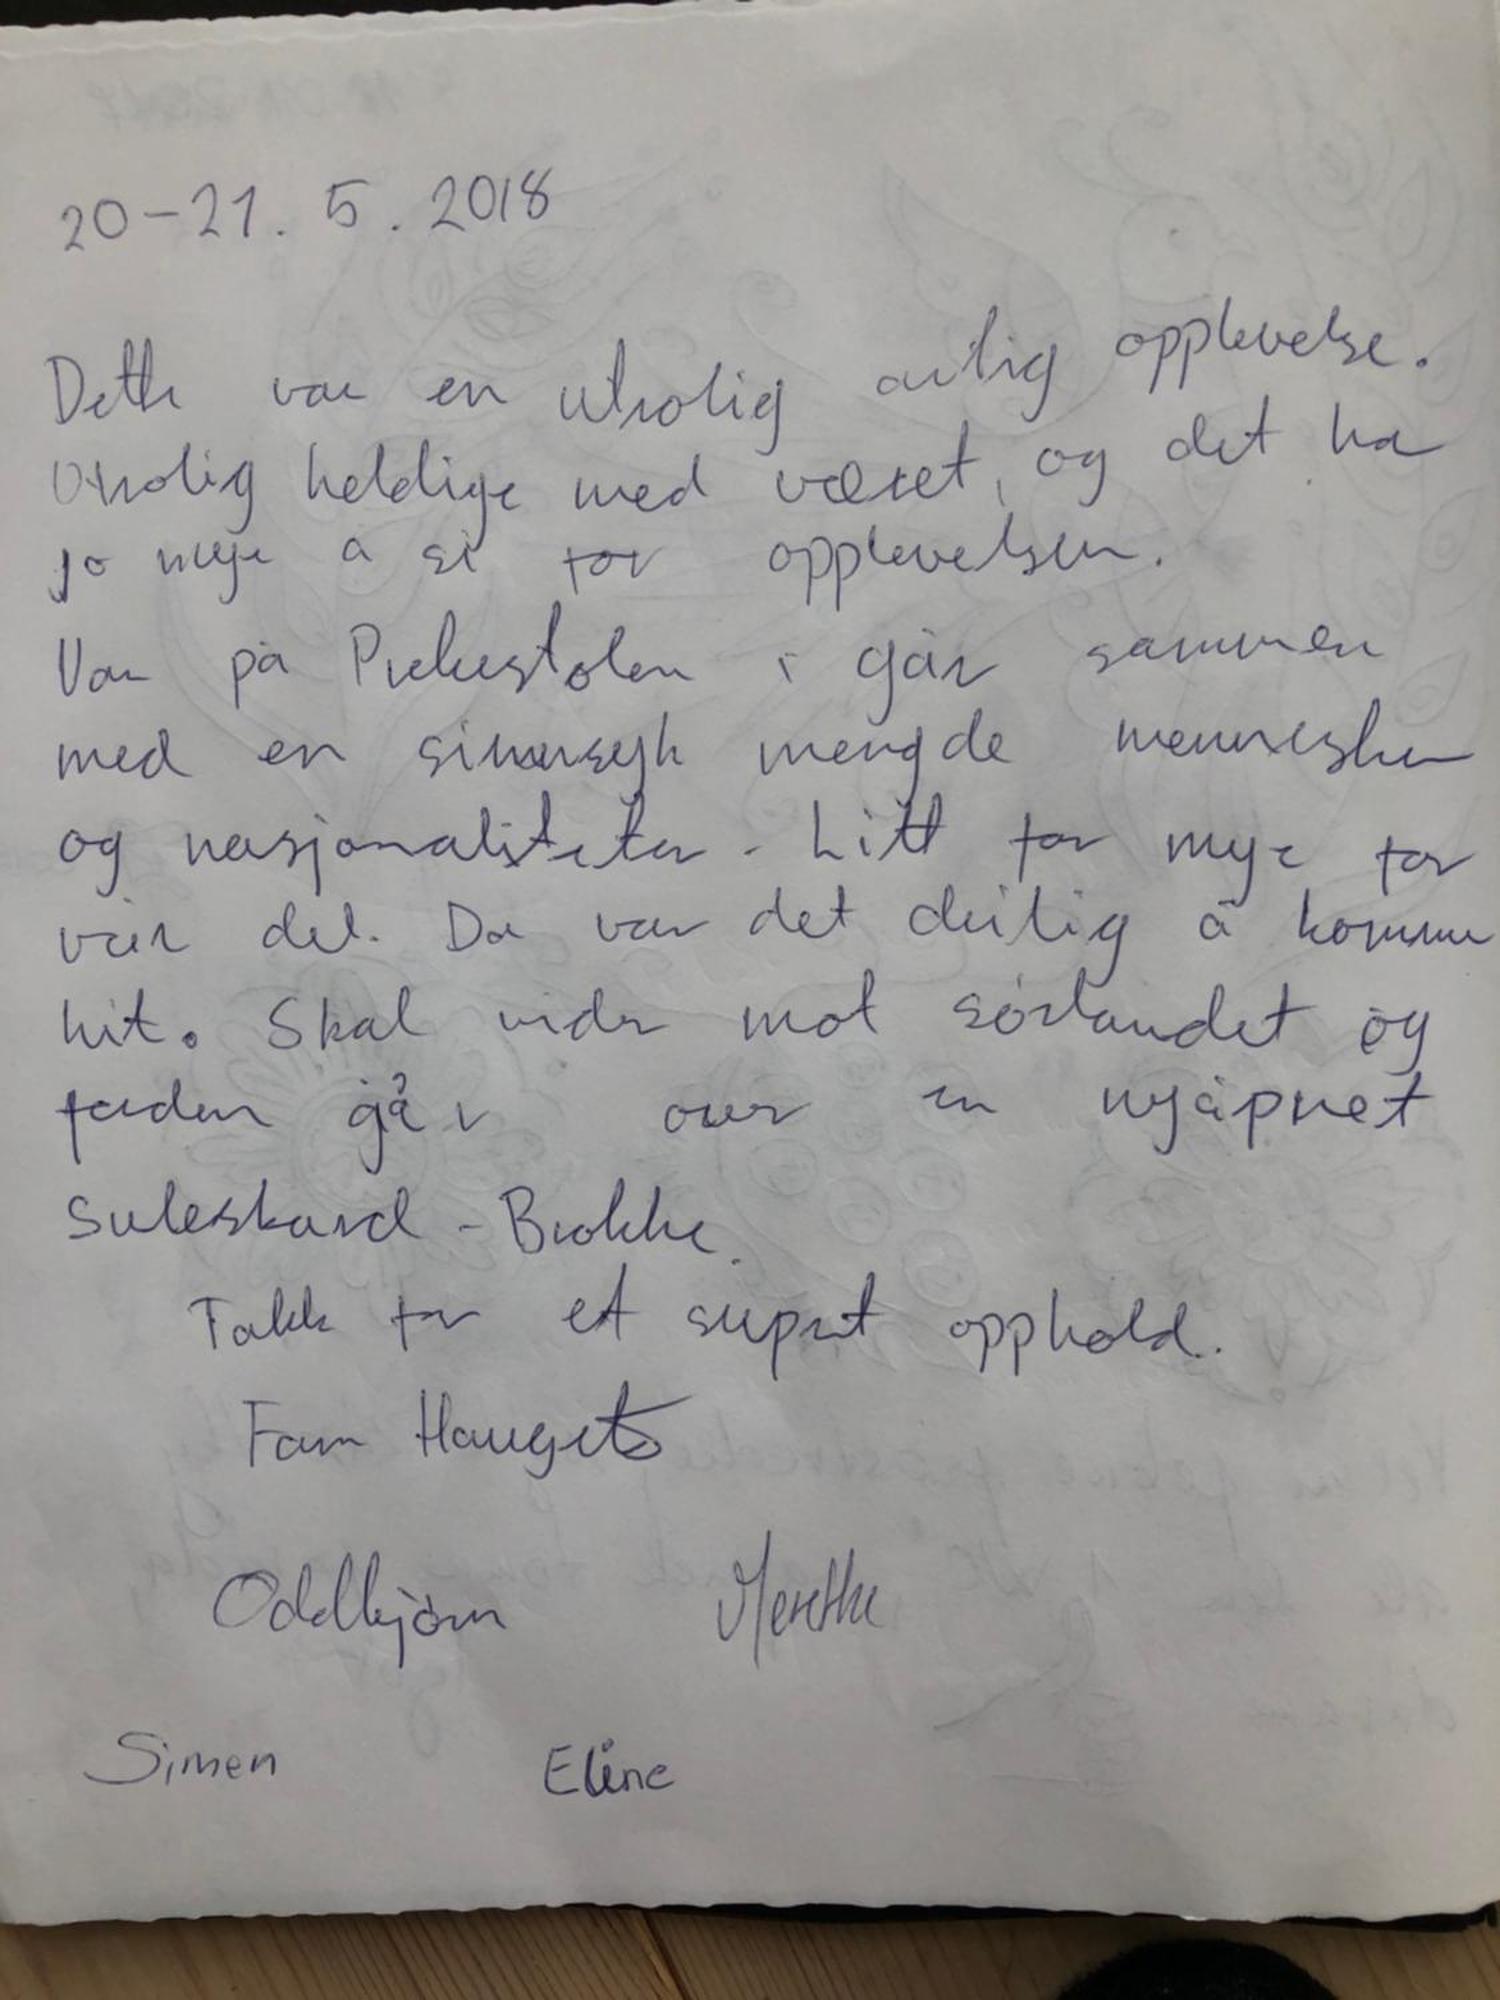 20-21. 5. 2018
Dette var en utrolig artig opplevelse.
Utrolig heldige med været, og det har
jo mye å si for opplevelsen.
Var på Preikestolen i går sammen
med en sinnsyk mengde mennesker
og nasjonaliteter. Litt for mye for
vår del. Da var det deilig å komme
hit. Skal vider mot sørlandet og
ferden går over en nyåpnet
Suleskard - Brokke.
Takk for et supert opphold.
Fam
Oddbjørn Merethe
Simen Eline